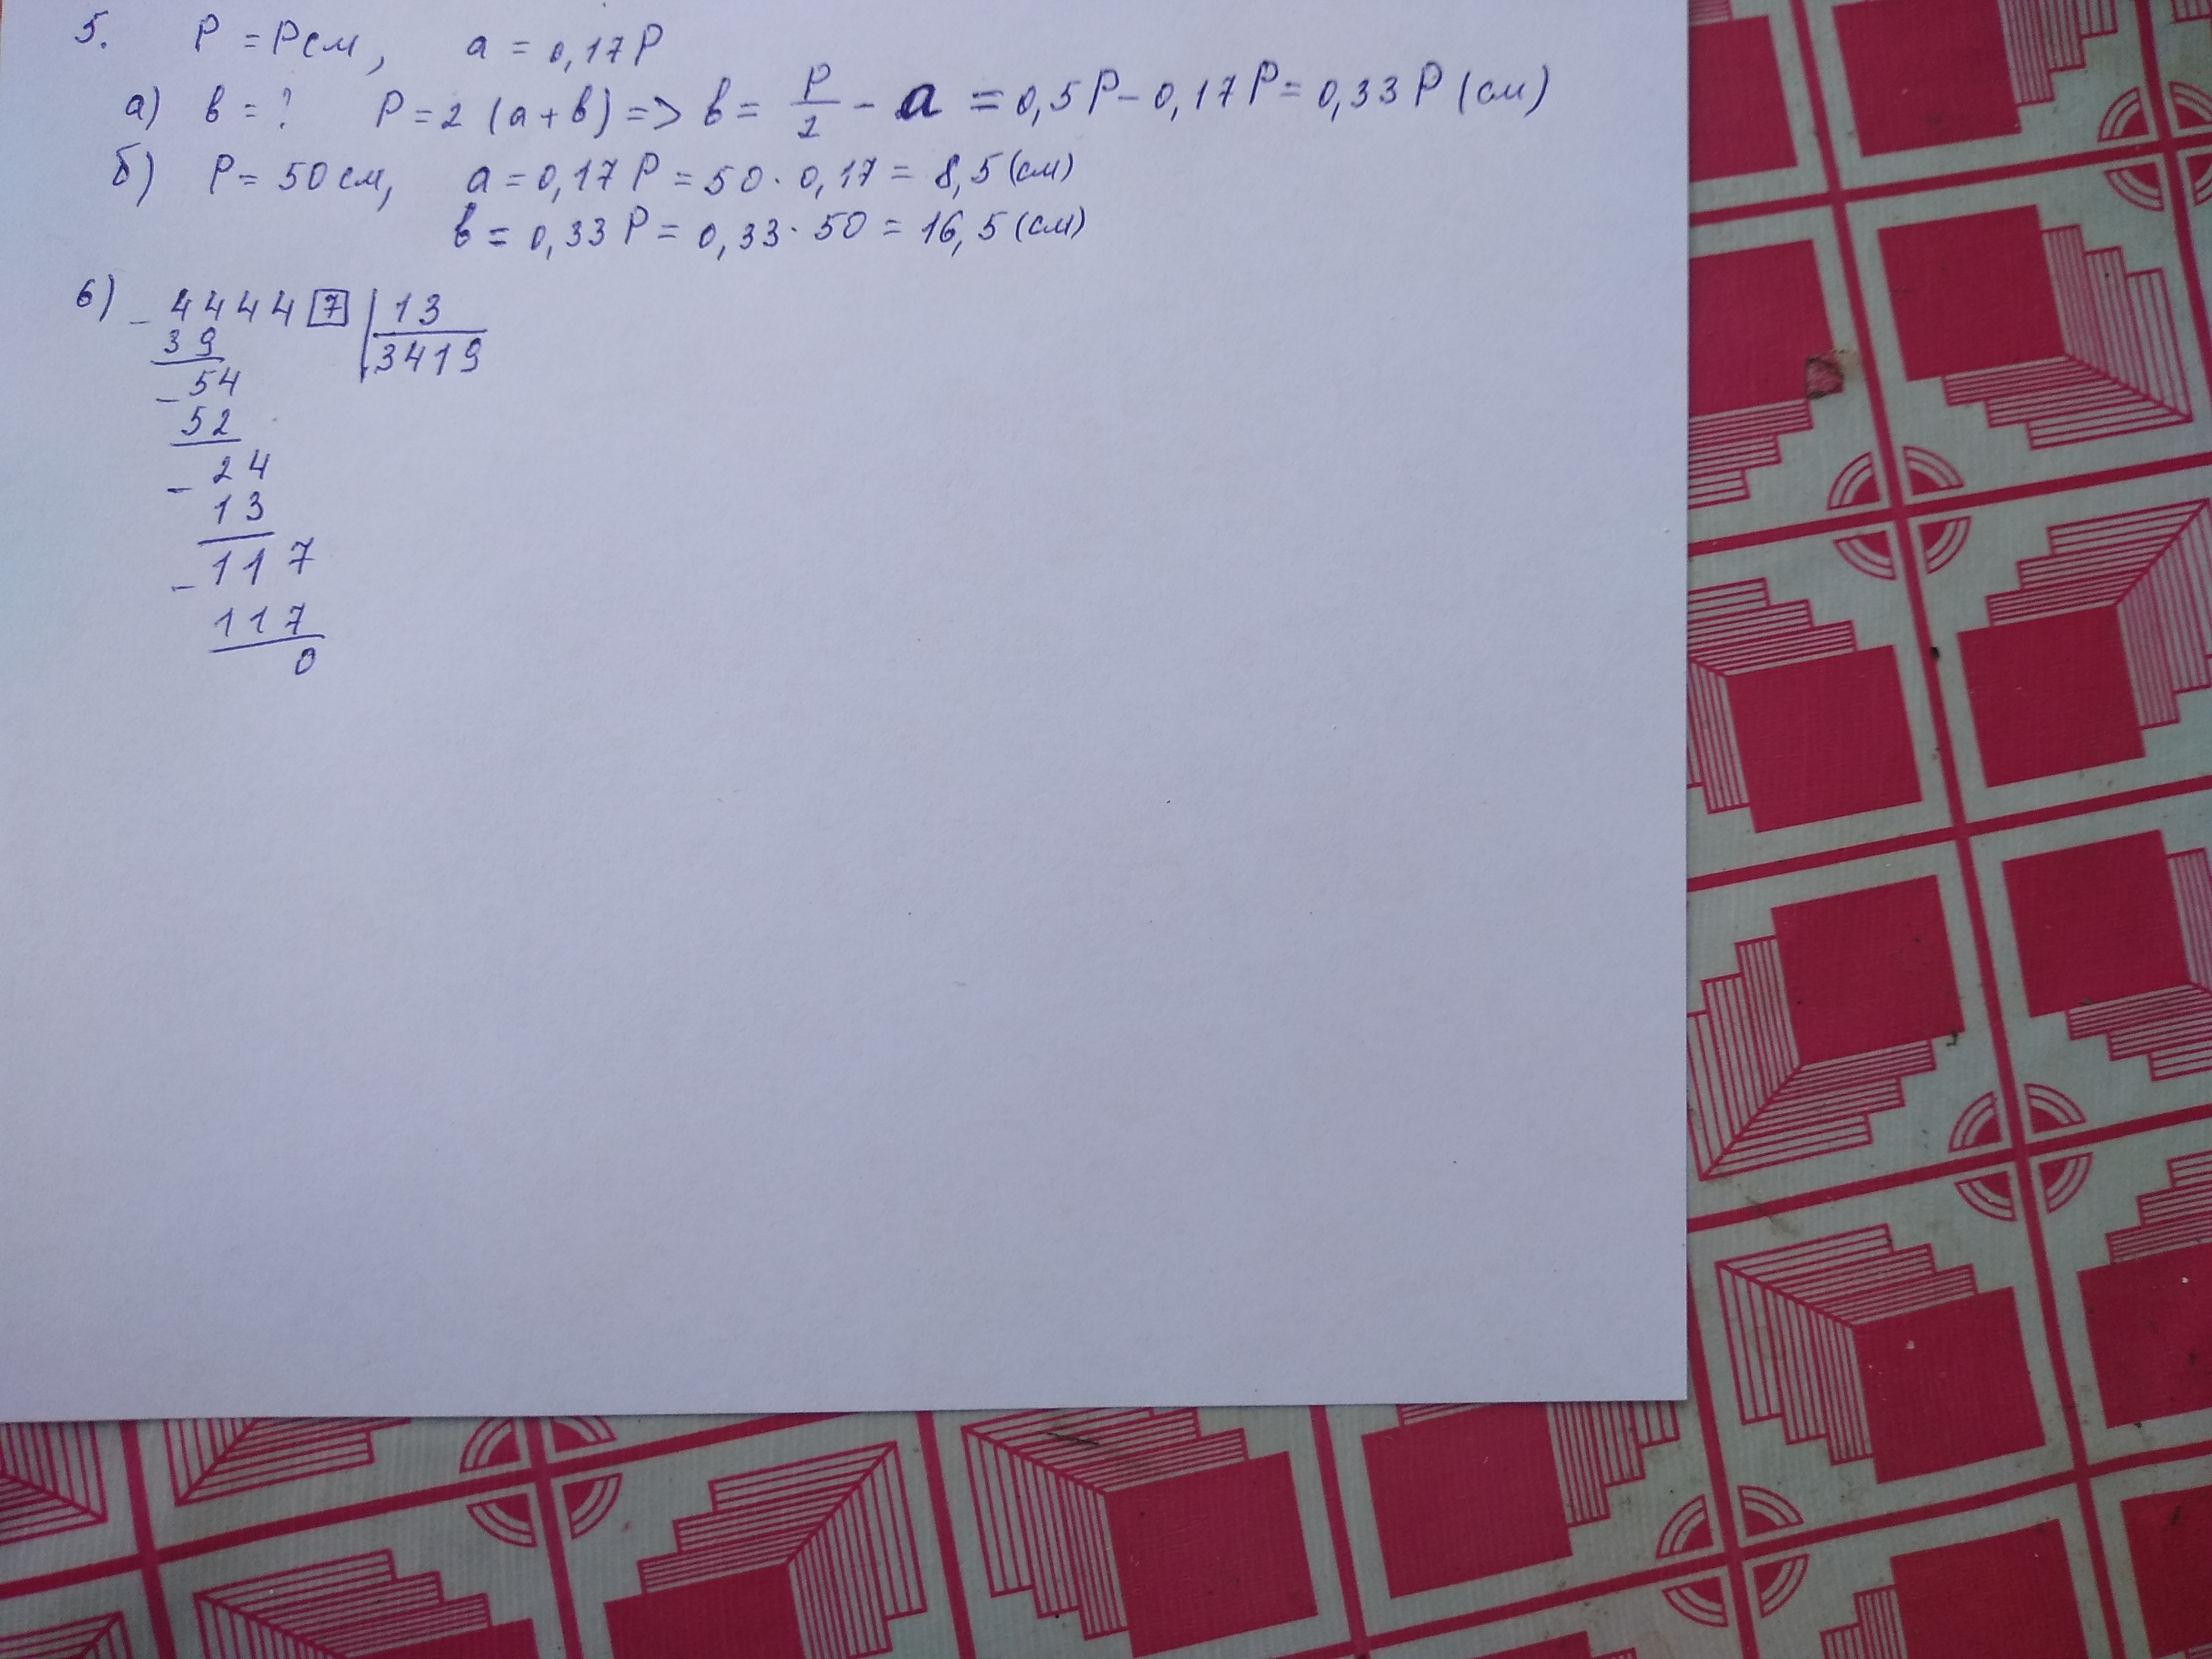 5. P = P см, a = 0,17 P
а) в = ? P = 2 (a + в) => в = P/2 - a = 0,5 P - 0,17 P = 0,33 P (см)
б) P = 50 см, a = 0,17 P = 50 · 0,17 = 8,5 (см)
в = 0,33 P = 0,33 · 50 = 16,5 (см)
6) - 4444 7 | 13
39 3419
- 54
52
- 24
13
- 117
117
0